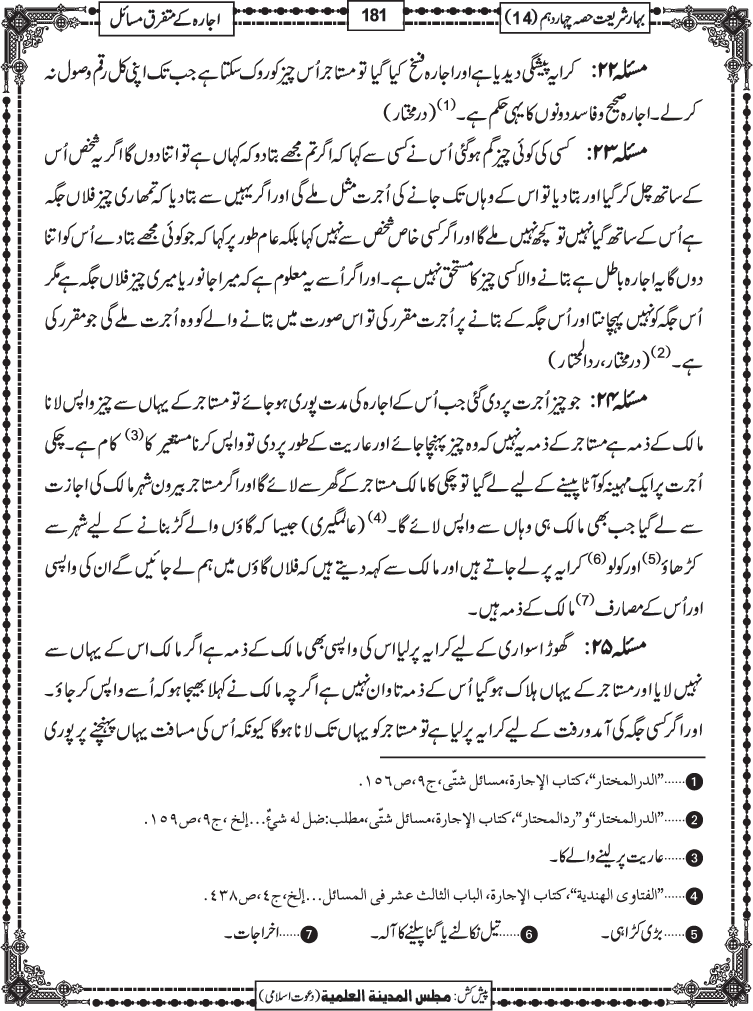 بہارِ شریعت حصہ چہاردہم (14)
181
اجارہ کے متفرق مسائل
مسئلہ ۲۲: کرایہ پیشگی دیدیا ہے اور اجارہ فسخ کیا گیا تو مستاجر اُس چیز کو روک سکتا ہے جب تک اپنی کل رقم وصول نہ
کرلے۔ اجارہ صحیح و فاسد دونوں کا یہی حکم ہے۔(1) (درمختار)
مسئلہ ۲۳: کسی کی کوئی چیز گم ہوگئی اُس نے کسی سے کہا کہ اگر تم مجھے بتادو کہ کہاں ہے تو اتنا دوں گا اگر یہ شخص اُس
کے ساتھ چل کر گیا اور بتا دیا تو اس کے وہاں تک جانے کی اُجرتِ مثل ملے گی اور اگر یہیں سے بتا دیا کہ تمھاری چیز فلاں جگہ
ہے اُس کے ساتھ گیا نہیں تو کچھ نہیں ملے گا اور اگر کسی خاص شخص سے نہیں کہا بلکہ عام طور پر کہا کہ جو کوئی مجھے بتادے اُس کو اتنا
دوں گا یہ اجارہ باطل ہے بتانے والا کسی چیز کا مستحق نہیں ہے۔ اور اگر اُسے یہ معلوم ہے کہ میرا جانور یا میری چیز فلاں جگہ ہے مگر
اُس جگہ کو نہیں پہچانتا اور اُس جگہ کے بتانے پر اُجرت مقرر کی تو اس صورت میں بتانے والے کو وہ اُجرت ملے گی جو مقرر کی
ہے۔(2) (درمختار، ردالمحتار)
مسئلہ ۲۴: جو چیز اُجرت پر دی گئی جب اُس کے اجارہ کی مدت پوری ہوجائے تو مستاجر کے یہاں سے چیز واپس لانا
مالک کے ذمہ ہے مستاجر کے ذمہ یہ نہیں کہ وہ چیز پہنچا جائے اور عاریت کے طور پر دی تو واپس کرنا مستعیر کا(3) کام ہے۔ چکی
اُجرت پر ایک مہینہ کو آٹا پیسنے کے لیے لے گیا تو چکی کا مالک مستاجر کے گھر سے لائے گا اور اگر مستاجر بیرونِ شہر مالک کی اجازت
سے لے گیا جب بھی مالک ہی وہاں سے واپس لائے گا۔(4) (عالمگیری) جیسا کہ گاؤں والے گڑ بنانے کے لیے شہر سے
کڑھاؤ(5) اور کولو(6) کرایہ پر لے جاتے ہیں اور مالک سے کہہ دیتے ہیں کہ فلاں گاؤں میں ہم لے جائیں گے ان کی واپسی
اور اُس کے مصارف(7) مالک کے ذمہ ہیں۔
مسئلہ ۲۵: گھوڑا سواری کے لیے کرایہ پر لیا اس کی واپسی بھی مالک کے ذمہ ہے اگر مالک اس کے یہاں سے
نہیں لایا اور مستاجر کے یہاں ہلاک ہوگیا اُس کے ذمہ تاوان نہیں ہے اگرچہ مالک نے کہلا بھیجا ہو کہ اُسے واپس کر جاؤ۔
اور اگر کسی جگہ کی آمدورفت کے لیے کرایہ پر لیا ہے تو مستاجر کو یہاں تک لانا ہوگا کیونکہ اُس کی مسافت یہاں پہنچنے پر پوری
1......"الدرالمختار"، کتاب الإجارة،مسائل شتّی،ج۹،ص۱۵٦.
2......"الدرالمختار"و"ردالمحتار"، کتاب الإجارة،مسائل شتّی،مطلب:ضل له شیءٌ...إلخ،ج۹،ص۱۵۹.
3......عاریت پر لینے والے کا۔
4......"الفتاوی الهندیة"، کتاب الإجارة، الباب الثالث عشر فی المسائل...إلخ،ج٤،ص٤٣٨.
5......بڑی کڑاہی۔ 6......تیل نکالنے یا گنا پیلنے کا آلہ۔ 7......اخراجات۔
پیش کش: مجلس المدینة العلمیة (دعوتِ اسلامی)